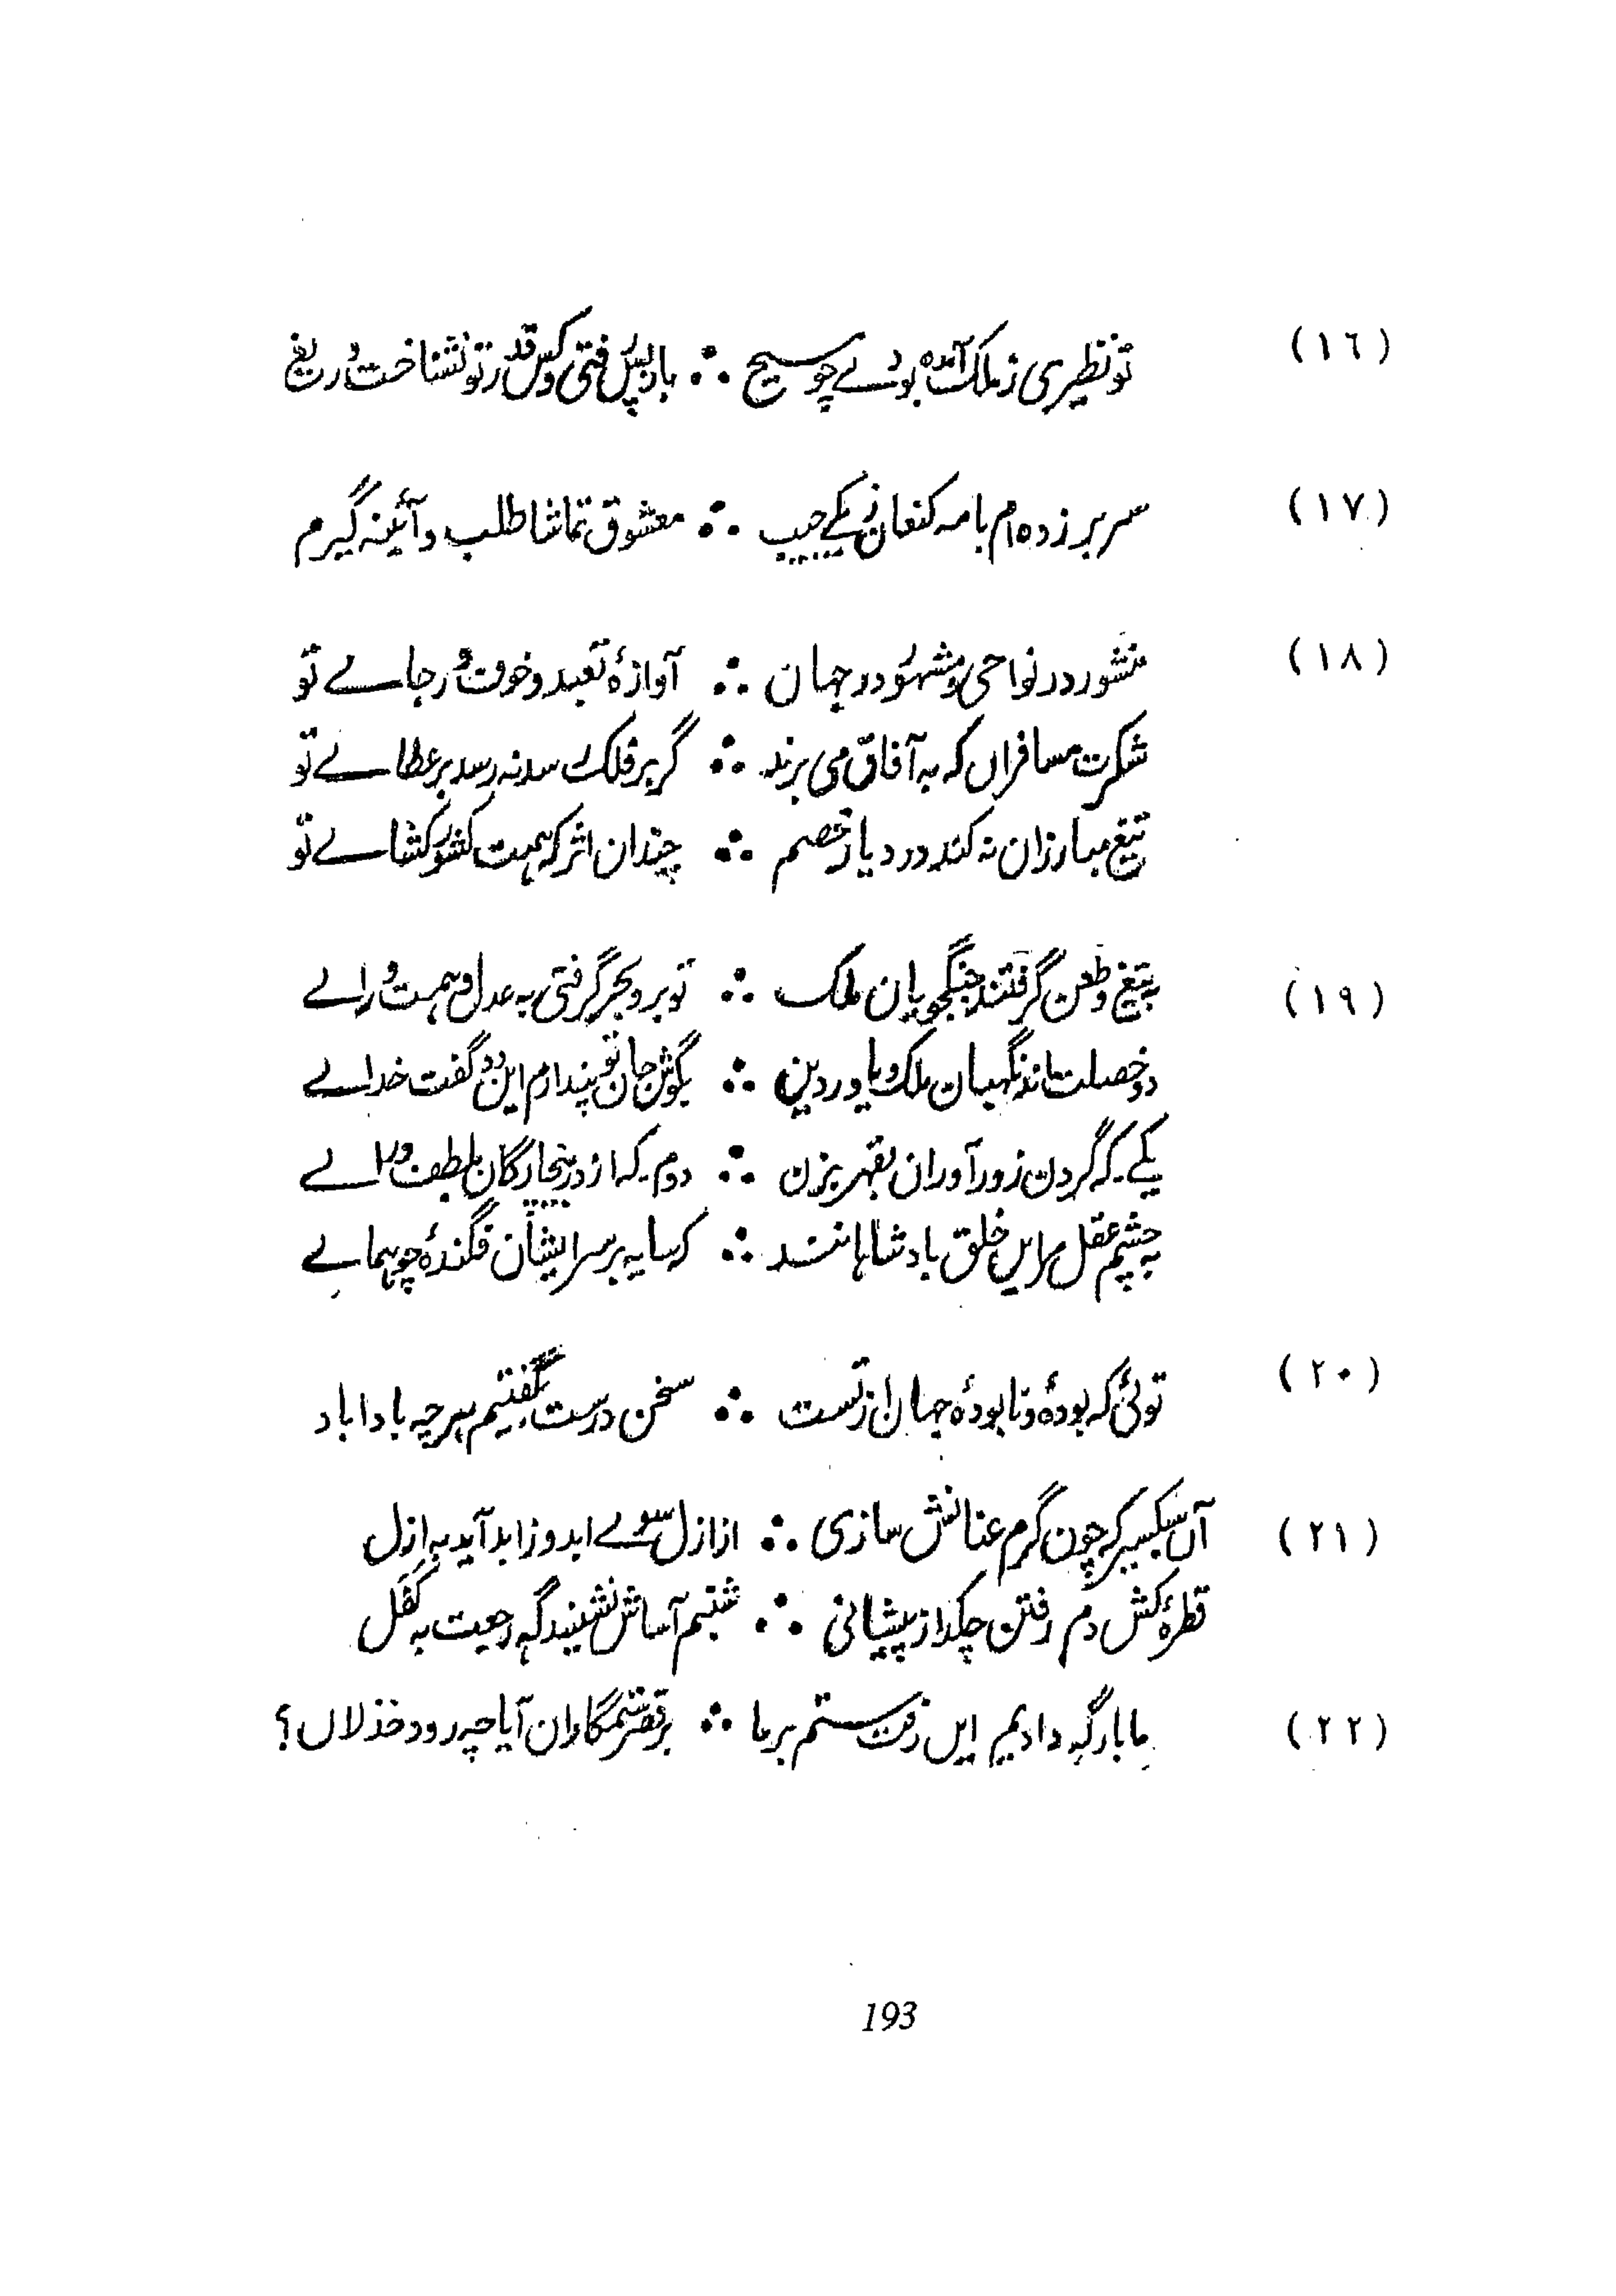 (١٦) تو نظیری ز ملک آمده بودے چو مسیح ∴ باز پس رفتی و کس قدر تو نشناخت دریغ
(١٧) سر بر زده ام با مہ کنعان ز یکے جیب ∴ معشوق تماشا طلب و آئینہ گیرم
(١٨) منشور در نواحی و مشہور در جہان ∴ آوازۂ تعبد و خوف و رجاے تو
شکرت مسافراں کہ بہ آفاق می برند ∴ گر بر فلک رسد نہ رسد بر عطاے تو
تیغ مبارزان نہ کند در دیار خصم ∴ چندان اثر کہ ہمت کشور کشاے تو
(١٩) بہ تیغ و طعن گرفتند جنگجویان ملک ∴ تو بر و بحر گرفتی بہ عدل و ہمت و راے
دو خصلت اند نگہبان ملک و یاور دین ∴ بگوش جان تو پندارم این دو گفت خداے
یکے کہ گردن زور آوران بقہر بزن ∴ دوم کہ از در بیچارگان بلطف در آے
بہ چشم عقل مر این خلق بادشاہانند ∴ کہ سایہ بر سر ایشان فگندۂ چو ہماے
(٢٠) توئی کہ بودۂ و نابودۂ جہان از تست ∴ سخن درست بگفتیم ہر چہ بادا باد
(٢١) آں سبکسیر کہ چون گرم عنانش سازی ∴ از ازل سوے ابد وز ابد آید بہ ازل
قطرۂ کش دم رفتن چکد از پیشانی ∴ شبنم آساش نشیند گہ رجعت بہ کفل
(٢٢) ما بارگہ دادیم ایں رفت ستم بر ما ∴ بر قصر ستمگاران آیا چہ رود خذلاں؟
193